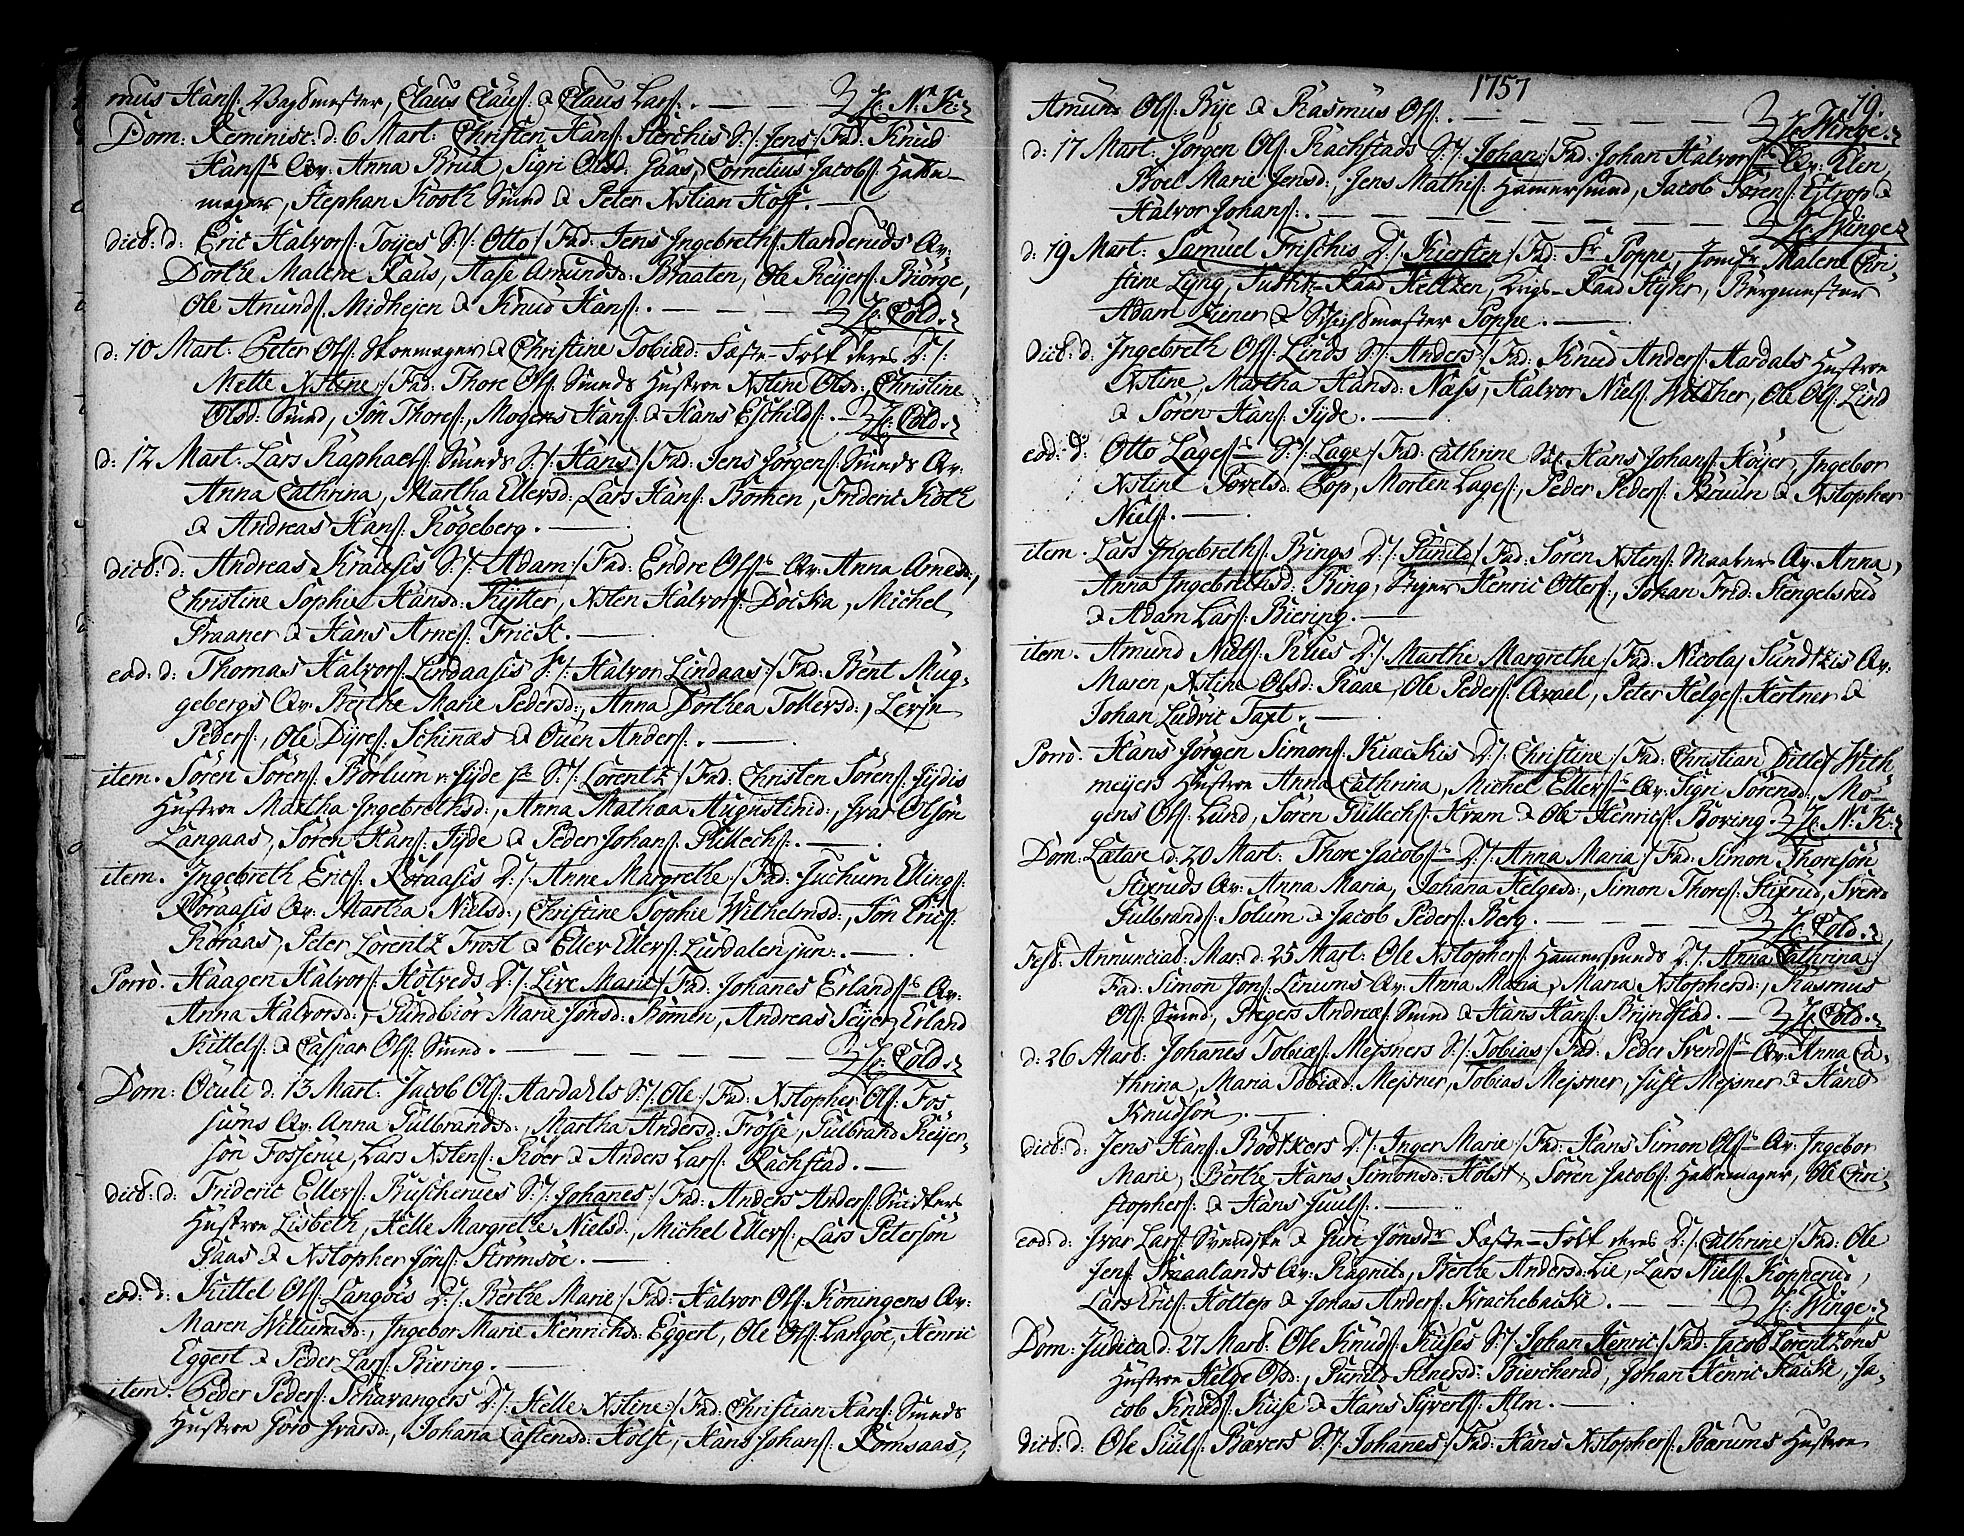 mus Hans: Bagsmester, Claus Claus: & Claus Lars:. — — H: N: K:
Dom: Reminisc: d: 6 Mart: Christen Hans: Sterchis S:/: Jens /: Fad: Knud
Hans: Qv: Anna Bruck, Sigri Olsd: Haas, Cornelius Jacobs: Hatte-
mager, Stephan Kooth Smed & Peter Xstian Hoff. —
dict: d: Eric Halvors: Toyes S:/: Otto /: Fad: Jens Ingebreths: Handeruds Qv:
Dorthe Malene Raus, Aase Amundsd: Braaten, Ole Reijers: Biörge,
Ole Amunds: Midhejen & Knud Hans:. — — H: Cold.
d: 10 Mart: Peter Ols: Skoemager & Christine Tobiæd: Fæste-Folk deres D:/:
Mette Xstine /: Fad: Thore Ols: Smeds Hustroe Xstine Olsd:, Christine
Olsd: Smed, Jön Thores:, Mogens Hans: & Hans Eschilds:. — H: Cold.
d: 12 Mart: Lars Raphaels: Smeds S:/: Hans /: Fad: Jens Jörgens: Smeds Qv:
Anna Cathrina, Martha Ellersd:, Lars Hans: Borhen, Frideric Koth
& Andreas Hans: Rögeberg. —
dict: d: Andreas Kræfsis S:/: Adam /: Fad: Endre Ols: Qv: Anna Arnesd:,
Christine Sophie Hansd: Rytter, Xsten Halvors: Docka, Michel
Praaner & Hans Arnes: Frick. —
eod: d: Thomas Halvors: Lindaasis S:/: Halvor Lindaas /: Fad: Bent Mug-
gebergs Qv: Berthe Marie Pedersd:, Anna Dorthea Tollevsd:, Levin
Peders:, Ole Dyres: Schinæs & Ouen Anders:. —
item. Sören Sörens: Börlum v: Fijde S:/: Lorentz /: Fad: Christen Sörens: Fijdis
Hustroe Martha Ingebrethsd:, Anna Mathæa Augustinid:, Ivar Olsön
Langaas, Sören Hans: Fijde & Peder Johans: Killech:. —
item. Ingebreth Erics: Roraasis D:/: Anne Margrethe /: Fad: Juchum Ellings:
Roraasis Qv: Martha Nielsd:, Christine Sophie Wilhelmsd:, Jön Erics:
Röraas, Peter Lorentz Frost & Eller Ellers: Lurdalen jun:. —
Porrò. Haagen Halvors: Hotveds D:/: Live Marie /: Fad: Johanes Erlands: Qv:
Anna Halvorsd:, Gundbiör Marie Jönsd: Bömen, Andreas Seyer, Erland
Kittels: & Caspar Ols: Smed. — — — — H: Cold.
Dom: Oculi d: 13 Mart: Jacob Ols: Aardahls S:/: Ole /: Fad: Xstopher Ols: Fos-
surns Qv: Anna Gulbrandsd:, Martha Andersd: Frösje, Gulbrand Reijer-
sön Fosserue, Lars Xstens: Röer & Anders Lars: Rachstad. —
dict: d: Frideric Ellers: Buscherues S:/: Johanes /: Fad: Anders Anders: Snidkers
Hustroe Lisbeth, Helle Margrethe Nielsd:, Michel Ellers:, Lars Petersön
Paas & Xstopher Jöns: Strömsöe. —
eod: d: Kittel Ols: Langöes D:/: Berthe Marie /: Fad: Halvor Ols: Köningens Qv:
Maren Willumsd:, Ingebor Marie Henrichsd: Eggert, Ole Ols: Langöe, Henric
Eggert & Peder Lars: Biering. —
item. Peder Peders: Schavangers D:/: Helle Xstine /: Fad: Christian Hans: Smeds
Hustroe Goro Ivarsd:, Johana Castensd: Holst, Hans Johans: Romsaas,
1757
19.
Amund Ols: Bije & Rasmus Ols:. — — — H: Winge.
d: 17 Mart: Jörgen Ols: Rachstads S:/: Johan /: Fad: Johan Halvors: Qv: Elen,
Boel Marie Jensd:, Jens Maths: Hammersmed, Jacob Sörens: Estrop &
Halvor Johans:. — — — H: Winge
d: 19 Mart: Samuel Frischis D:/: Kiersten /: Fad: Fr: Poppe, Jomfr: Malene Chri-
stine Lyng, Justitz-Raad Heltzen, Krigs-Raad Stijhr, Bergmester
Adam Ziener & Schichtmester Poppe. —
dict: d: Ingebreth Ols: Linds S:/: Anders /: Fad: Knud Anders: Aardals Hustroe
Xstine, Martha Hansd: Næss, Halvor Niels: Wildher, Ole Ols: Lind
& Sören Hans: Fijde. —
eod: d: Otto Lages: S:/: Lage /: Fad: Cathrine Sal: Hans Johans: Höijer, Ingebor
Xstine Povelsd: Pop, Morten Lages:, Peder Peders: Bruun & Xstopher
Niels:. —
item. Lars Ingebreths: Brings D:/: Gunild /: Fad: Sören Xstens: Maalers Qv: Anna,
Anna Ingebrethsd: Bing, Henric Otters:, Johan Frid: Stengelsrud
& Adam Lars: Biering. —
item. Amund Niels: Rues D:/: Marthe Margrethe /: Fad: Nicolaj Sundtzis Qv:
Maren, Xstine Olsd: Raae, Ole Peders: Quael, Peter Helges: Hertner &
Johan Ludvic Taxt. —
Porrò. Hans Jörgen Simons: Kiackis D:/: Christine /: Fad: Christian Ditlef With-
meijers Hustroe Anna Cathrina, Michel Ellers: Qv: Sigri Sörensd:, Mo-
gens Ols: Lund, Sören Gullechs: Kram & Ole Henrics: Boring. H: N: K:
Dom: Lætare d: 20 Mart: Thore Jacobs: D:/: Anna Maria /: Fad: Simon Thoresön
Stixruds Qv: Anna Maria, Johana Helgesd:, Simon Thores: Stixrud, Svend
Gulbrands: Solum & Jacob Peders: Berg. — — H: Cold.
Fest: Annunciat: Mar: d: 25 Mart: Ole Xstophers: Hammersmeds D:/: Anna Cathrina /:
Fad: Simon Jöns: Linums Qv: Anna Maria, Maria Xstophersd:, Rasmus
Ols: Smed, Gregers Andreæs: Smed & Hans Hans: Brÿndstad. — H: Cold.
d: 26 Mart: Johanes Tobiæs: Mejsners S:/: Tobias /: Fad: Peder Svends: Qv: Anna Ca-
thrina, Maria Tobiæd: Mejsner, Tobias Mejsner, Just Mejsner & Hans
Knudsön. —
dict: d: Jens Hans: Bödtkers D:/: Inger Marie /: Fad: Hans Simon Ols: Qv: Ingebor
Marie, Berthe Hans Simonsd: Holst, Sören Jacobs: Hattemager, Ole Chri-
stophers: & Hans Juuls:. —
eod: d: Ivar Lars: Svendske & Guri Jönsdr Fæste-Folk deres D:/: Cathrine /: Fad: Ole
Jens: Traalands Qv: Ragnild, Berthe Andersd: Lie, Lars Niels: Kopperud,
Lars Erics: Koltep & Jonas Anders: Krachebacke. — — H: Winge.
Dom: Judica d: 27 Mart: Ole Knuds: Kuses S:/: Johan Henric /: Fad: Jacob Lorentzöns
Hustroe Helge Olsd:, Gunild Stenersd: Bierckerud, Johan Henric Hacke, Ja-
cob Knuds: Kuse & Hans Syverts: Alm. —
dict: d: Ole Siuls: Bævers S:/: Johanes /: Fad: Hans Xstophers: Bærums Hustroe